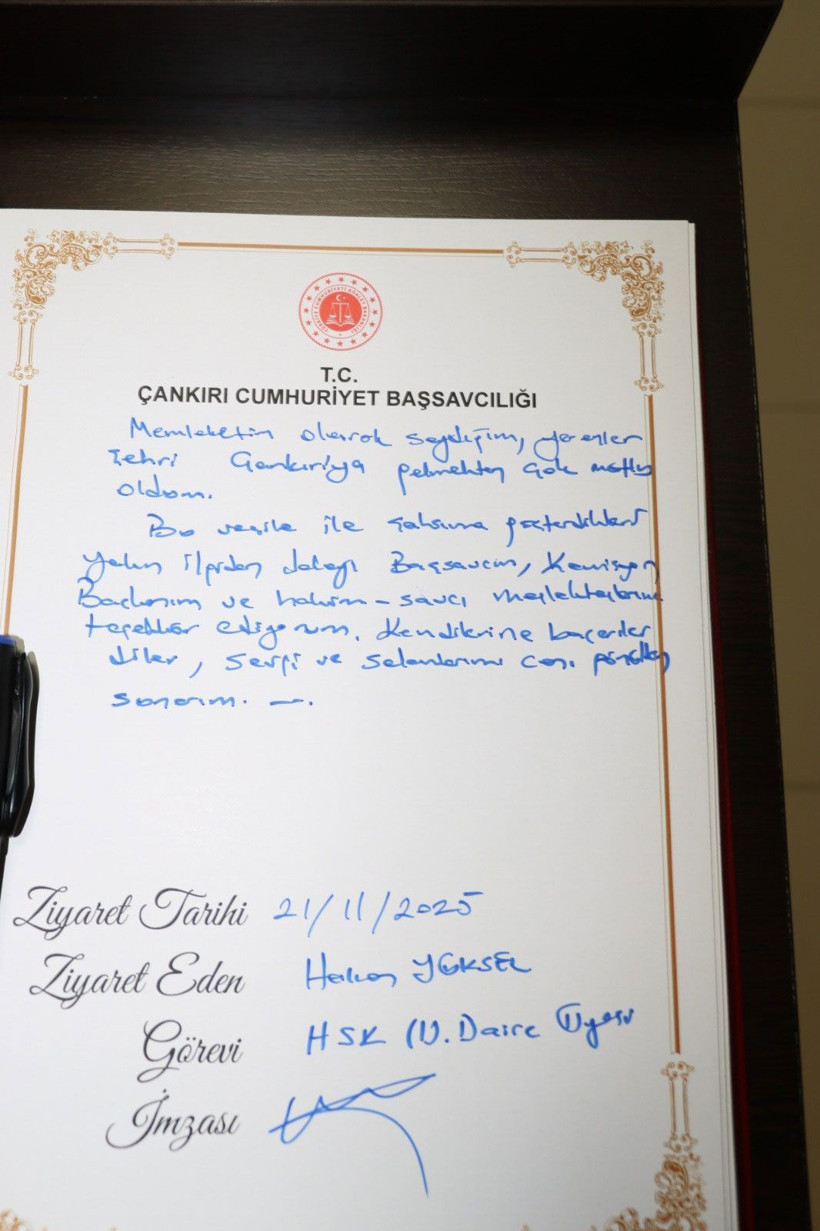 T.C.
ÇANKIRI CUMHURİYET BAŞSAVCILIĞI
Memleketim olarak saydığım, yarenler
şehri Çankırı'ya gelmekten çok mutlu
oldum.
Bu vesile ile şahsıma gösterdikleri
yakın ilgiden dolayı Başsavcım, Komisyon
Başkanım ve hakim-savcı meslektaşlarıma
teşekkür ediyorum. Kendilerine başarılar
diler, sevgi ve selamlarımı can-ı gönülden
sunarım.
Ziyaret Tarihi 21/11/2025
Ziyaret Eden Hakan YÜKSEL
Görevi HSK (1). Daire Üyesi
İmzası